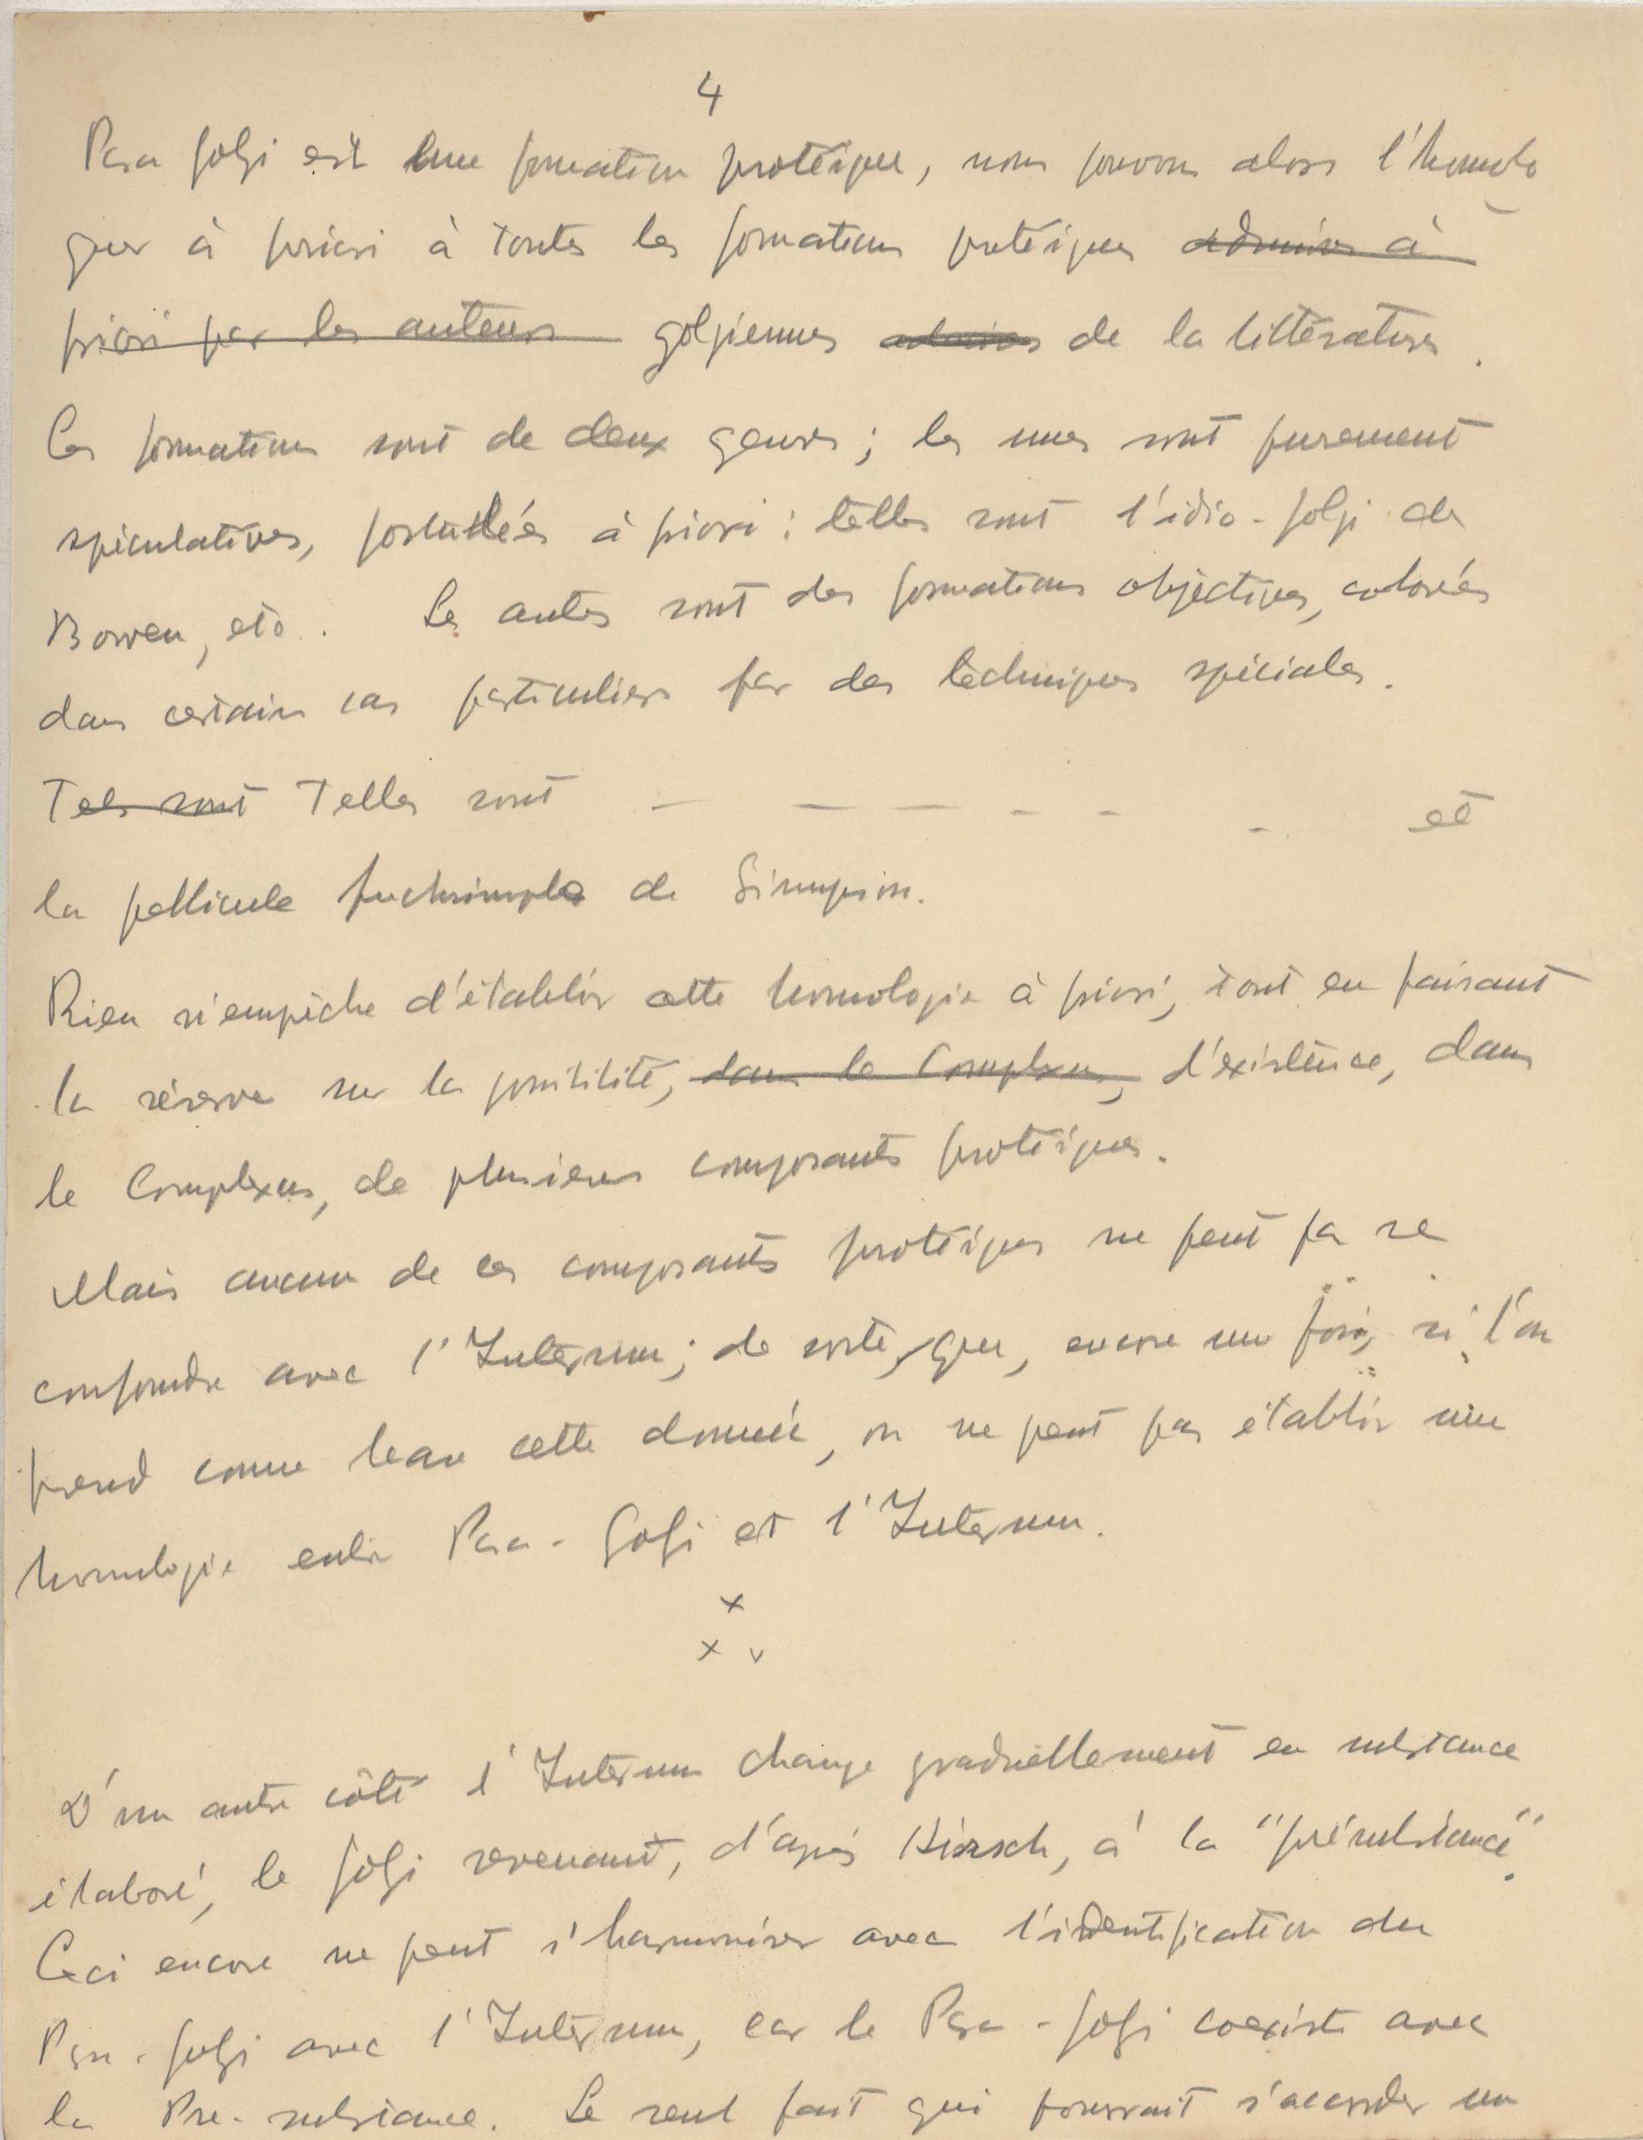 4
Para golgi est une formation protéique, nous pouvons alors l'homolo
guer à priori à toutes les formations protéiques admises à
priori par les auteurs golgiennes admises de la littérature.
Ces formations sont de deux genres ; les unes sont purement
spéculatives, postulées à priori : telles sont l'idio-golgi de
Bowen, etc. Les autres sont des formations objectives, colorées
dans certains cas particuliers par des techniques spéciales.
Tels sont Telles sont — — — - - - et
la pellicule fuchsinophile de Simpson.
Rien n'empêche d'établir cette homologie à priori, tout en faisant
la réserve sur la possibilité, dans le Complexus, d'existence, dans
le Complexus, de plusieurs composants protéiques.
Mais aucun de ces composants protéiques ne peut pas se
confondre avec l'Internum ; de sorte que, encore une fois, si l'on
prend comme base cette donnée, on ne peut pas établir une
homologie entre Para-Golgi et l'Internum.
x
x v
D'un autre côté l'Internum change graduellement en substance
élaboré, le golgi revenant, d'après Hirsch, à la "présubstance".
Ceci encore ne peut s'harmoniser avec l'identification du
Para-golgi avec l'Internum, car le Para-golgi coexiste avec
la Pre-substance. Le seul fait qui pourrait s'accorder un